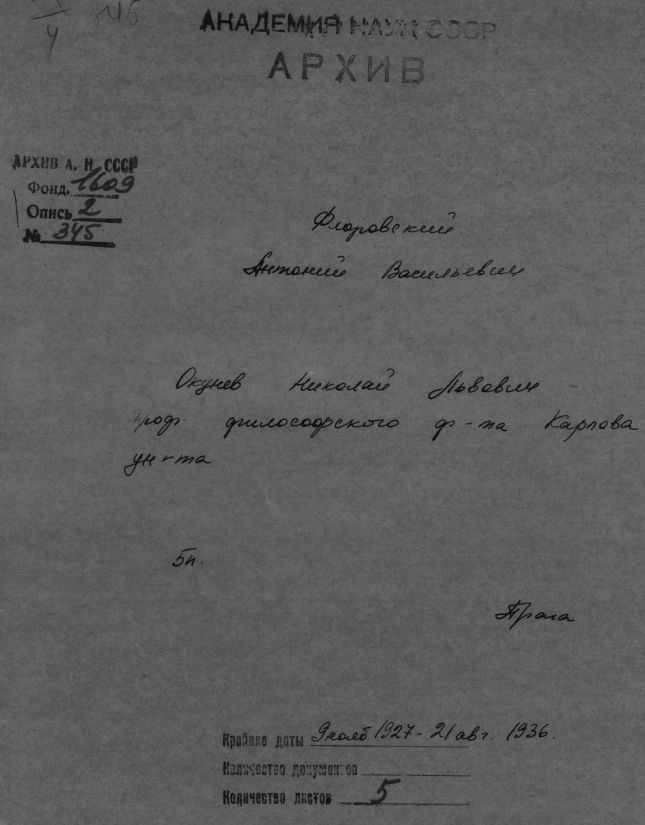 345
4
АКАДЕМИЯ НАУК СССР
АРХИВ
АРХИВ А. Н. СССР
Фонд. 1609
Опись 2
№ 345
Флоровский
Антоний Васильевич
Окунев Николай Львович
проф. философского ф-та Карлова
ун-та
5п.
Прага
Крайние даты 9 нояб 1927 - 21 авг. 1936.
Количество документов
Количество листов 5